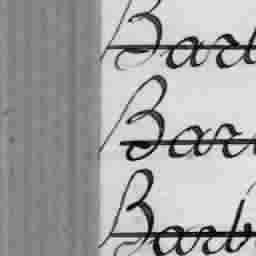 Barb
Barb
Barb